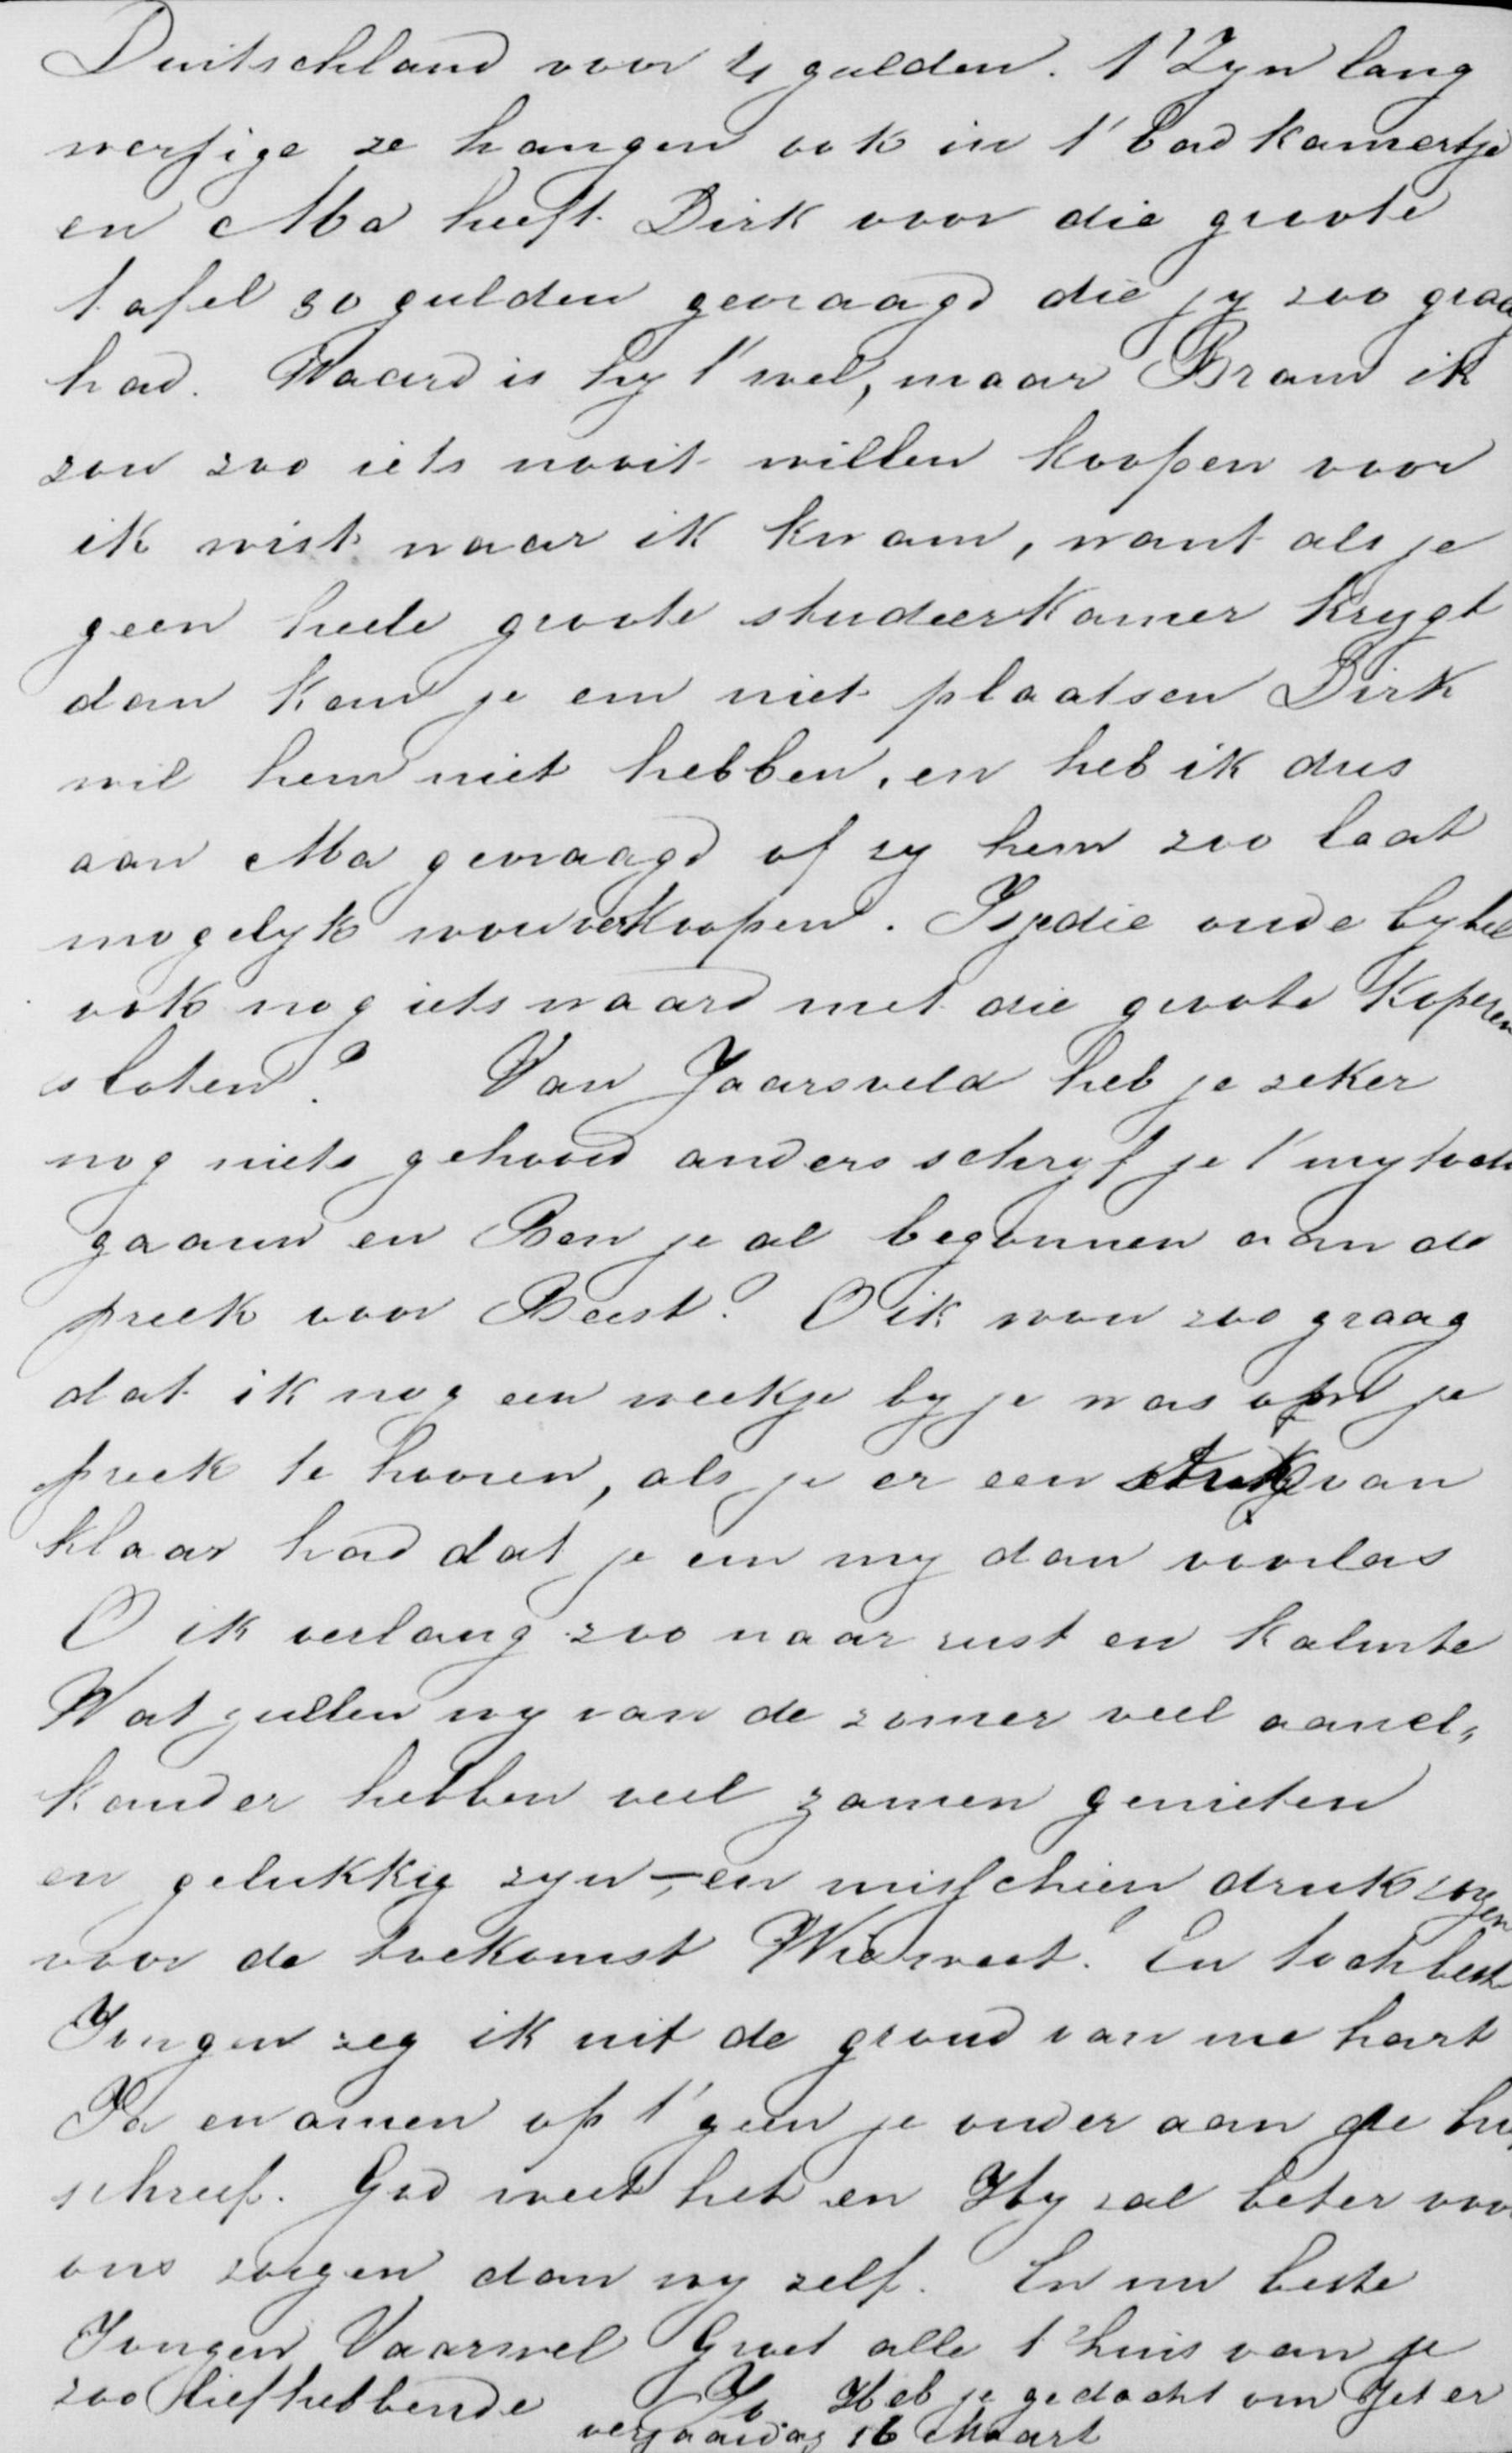 Duitschland voor 4 gulden. t' Zyn lang
werpige ze hangen ook in t' badkamertje
en Ma heeft Dirk voor die groote
tafel 30 gulden gevraagd die jy zoo graag
had. Waard is hy t' wel, maar Bram ik
zou zoo iets nooit willen koopen voor
ik wist waar ik kwam, want als je
geen heele groote studeerkamer krygt
dan kan je em niet plaatsen Dirk
wil hem niet hebben, en heb ik dus
aan Ma gevraagd of zy hem zoo laat
mogelyk wou verkoopen. Is die oude bybel
ook nog iets waard met die groote koperen
sloten? Van Jaarsveld heb je zeker
nog niets gehoord anders schryf je t' my toch
gaauw en Ben je al begonnen aan de
preek voor Beest? O ik wou zoo graag
dat ik nog een weekje by je was om je
preek te hooren, als je er een stuk van
klaar had dat je em my dan voorlas
O ik verlang zoo naar rust en kalmte
Wat zullen wy van de zomer veel aanel„
kander hebben veel zamen genieten
en gelukkig zyn – en misschien druk zorgen
voor de toekomst Wie weet! En toch beste
Jongen zeg ik uit de grond van me hart
Ja en amen op t' geen je onder aan de
schreef. God weet het en Hy zal beter voor
ons zorgen dan wy zelf. En nu beste
Jongen Vaarwel Groet alle t'huis van je
zoo liefhebbende Jo Heb je gedacht om Jet er
verjaardag 16 Maart